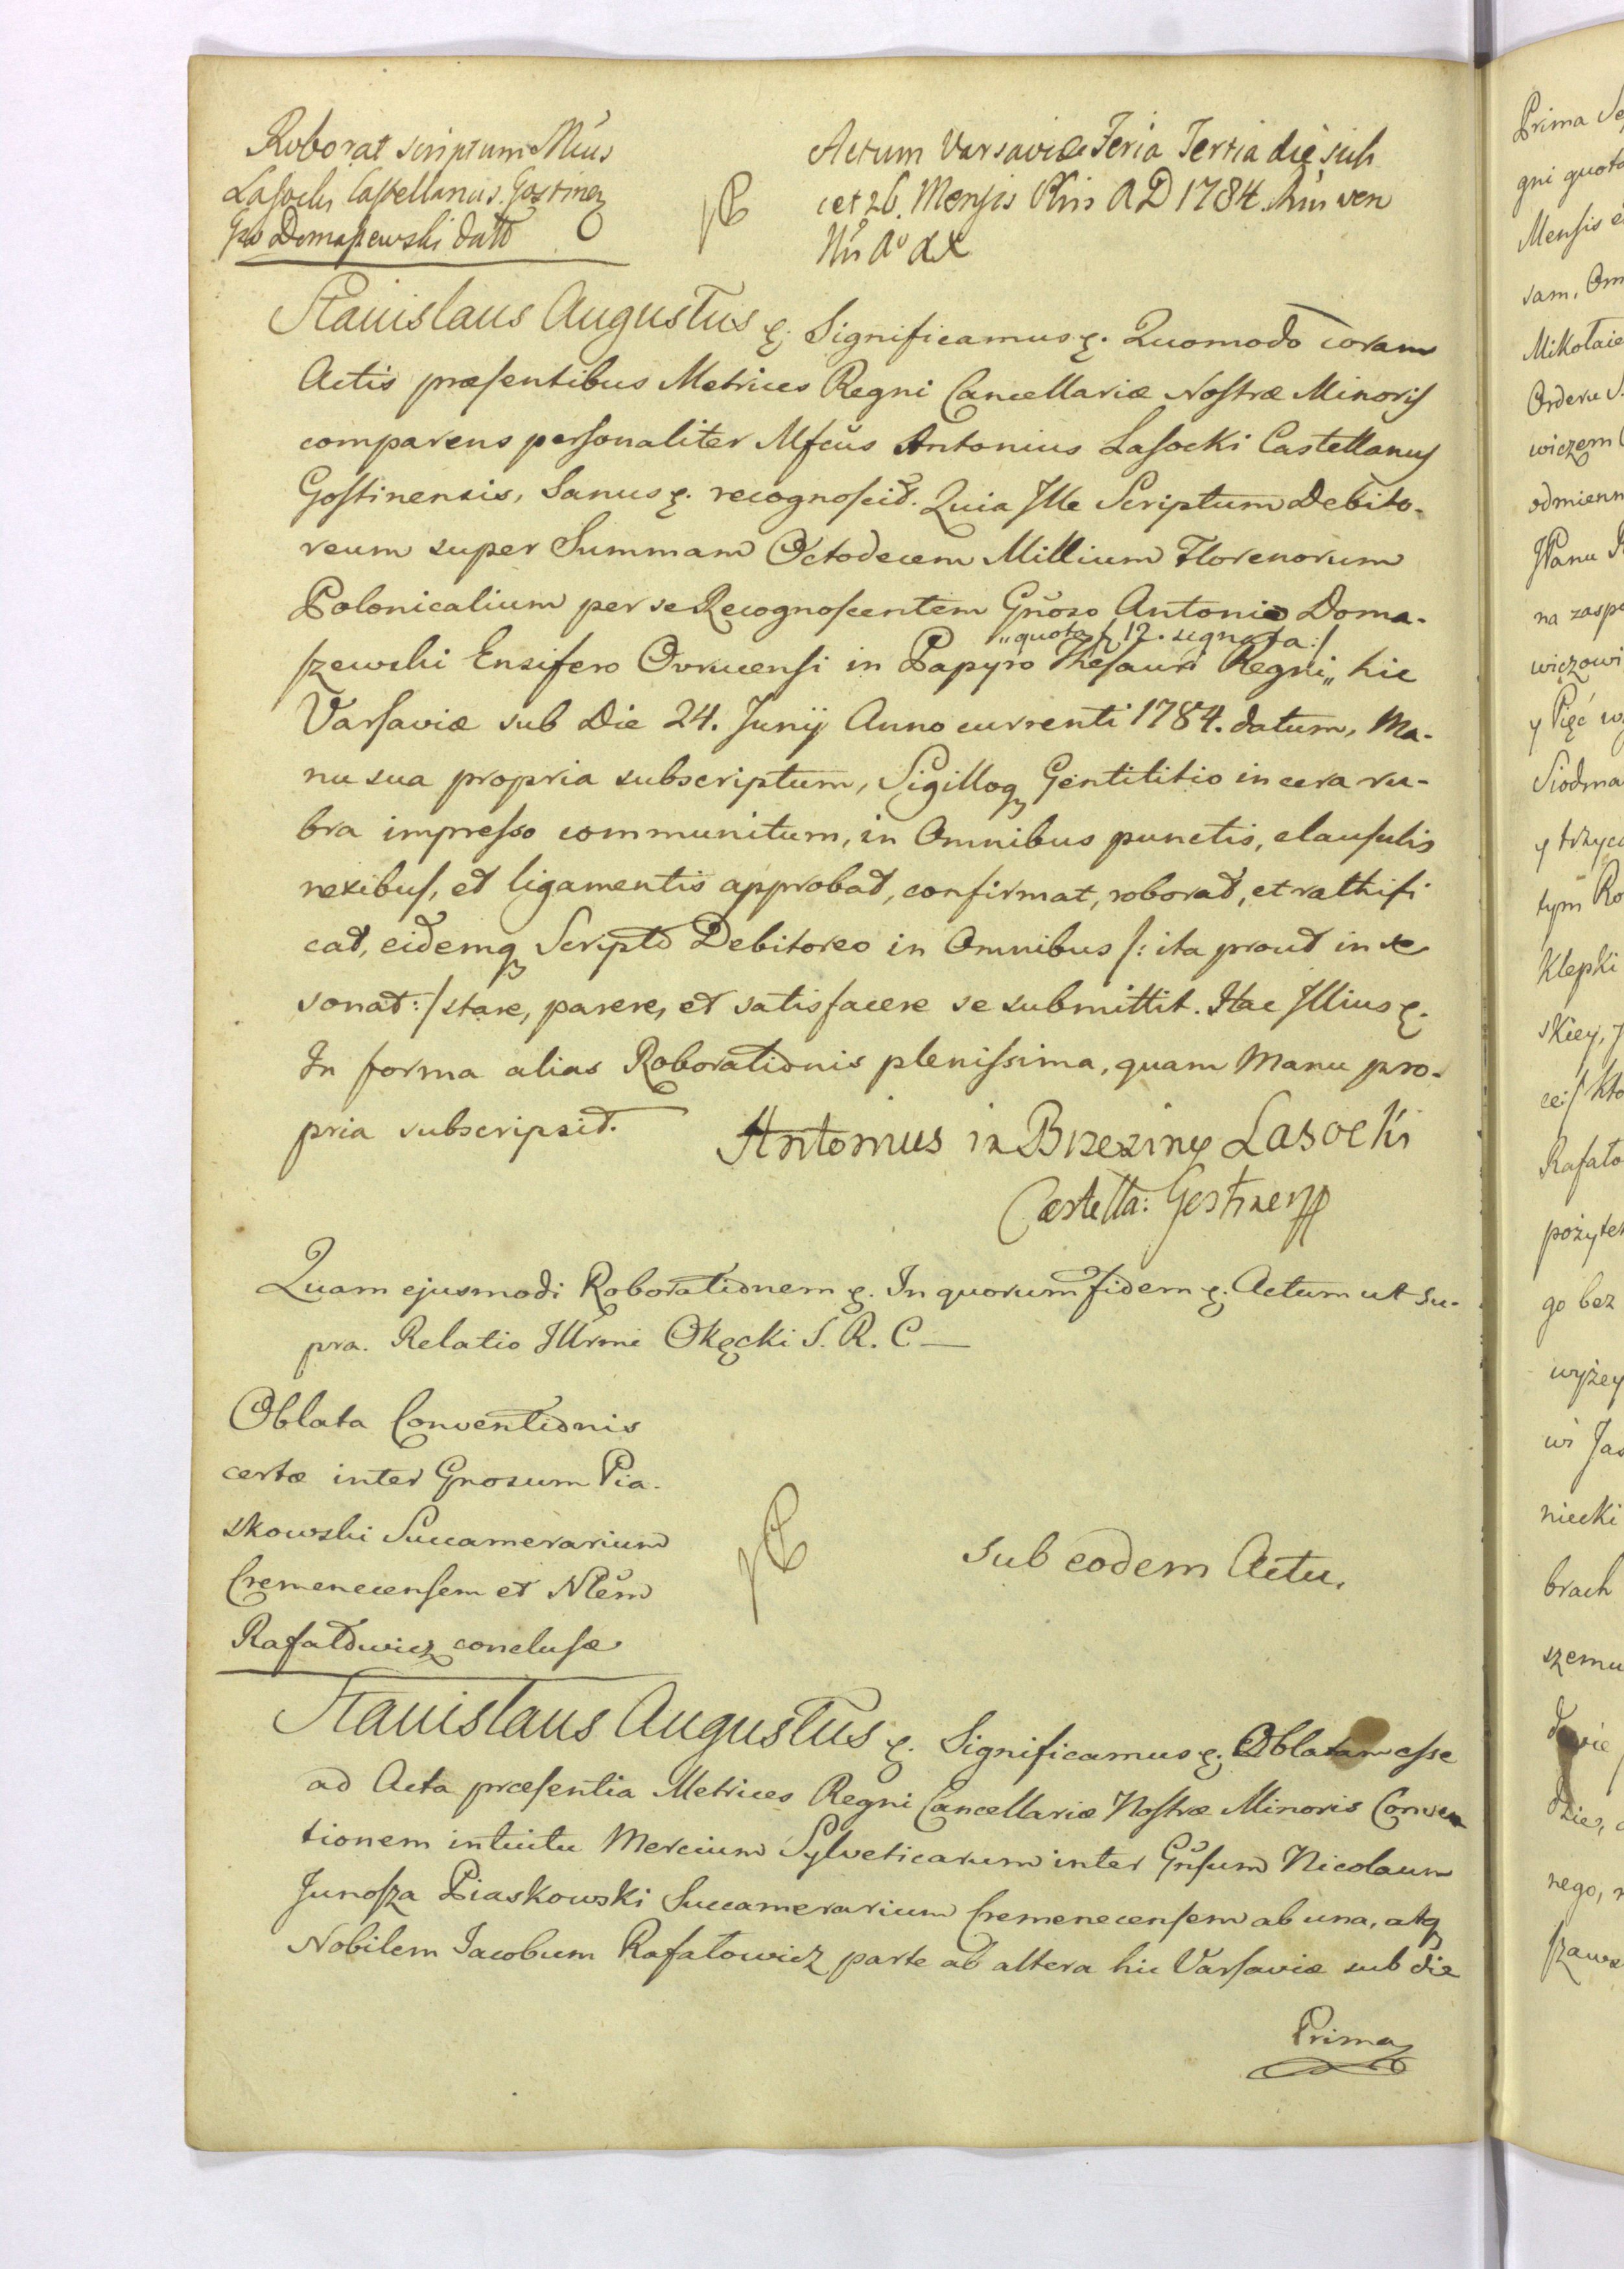 Roborat scriptum Mcus
Lasocki Castellanus Gostinen
Gso Domaszewski datt
Actum Varsaviæ Feria Tertia die
26. Mensis Xbris A D 1784. ven
Stanislaus Augustus &. Significamus &. Quomodo coram
Actis præsentibus Metrices Regni Cancellariæ Nostræ Minoris
comparens personaliter Mfcus Antonius Lasocki Castellanus
Gostinensis, Sanus &. recognoscit. Quia Ille Scriptum Debito-
reum super Summam Octodecem Millium Florenorum
Polonicalium per se Recognoscentem Gñoso Antonio Doma-
szewski Ensifero Ovrucensi in Papyro Thesauri Regni„ hic
„quota f 12. signata:/
Varsaviæ sub Die 24. Junij Anno currenti 1784. datum, Ma-
nu sua propria subscriptum, Sigilloq Gentilitio in cera ru-
bra impresso communitum, in Omnibus punctis, clausulis
nexibus, et ligamentis approbat, confirmat, roborat, et rathifi
cat, eidemq Scripto Debitoreo in Omnibus /: ita prout in se
sonat :/ stare, parere, et satisfacere se submittit. Hac Illius &.
In forma alias Roborationis plenissima, quam Manu pro-
pria subscripsit.
Antonius in Brzeziny Lasocki
Castella: Gostinen
Quam ejusmodi Roborationem &. In quorum fidem &. Actum ut su-
pra. Relatio Illrmi Okęcki S. R. C —
Oblata Conventionis
certæ inter Gnosum Pia-
skowski Succamerarium
Cremenecensem et Nlem
Rafałowicz conclusæ
Sub eodem Actu.
Stanislaus Augustus &. Significamus &. Oblatam esse
ad Acta præsentia Metrices Regni Cancellariæ Nostræ Minoris Conven
tionem intuitu Mercium Sylveticarum inter Gnsum Nicolaum
Junosza Piaskowski Succamerarium Cremenecensem ab una, atq
Nobilem Jacobum Rafałowicz parte ab altera hic Varsaviæ sub die
Prima
Prima
gni
Mensis
sam.
Mikołaie
Orderu
wiczem
odmienn
JPanu
na zasp
więzowi
y Pięć
Siodma
y trzyc
tym Ro
Klepki
skiey,
ce:/ Kto
Rafało
pożytek
go bez
wyżey
wi Jas
niecki
brach
szemu
nego,
szaws